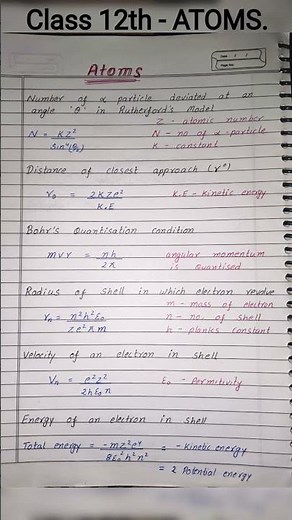 Class 12th - ATOMS.
Atoms
Number of α particle deviated at an
angle 'θ' in Rutherford's Model
Z - atomic number
N = KZ²/sin⁴(θ/2)
N - no. of α-particle
K - constant
Distance of closest approach (r°)
r₀ = 2KZe²/K.E
K.E - Kinetic energy
Bohr's Quantisation condition
mvr = nh/2π
angular momentum
is quantised
Radius of shell in which electron revolve
m - mass of electron
rₙ = n²h²ε₀/Ze²πm
n - no. of shell
h - planks constant
Velocity of an electron in shell
Vₙ = e²z²/2hε₀n
ε₀ - Permitivity
Energy of an electron in shell
Total energy = -mz²e⁴/8ε₀²h²n² = - Kinetic energy
= 2 Potential energy